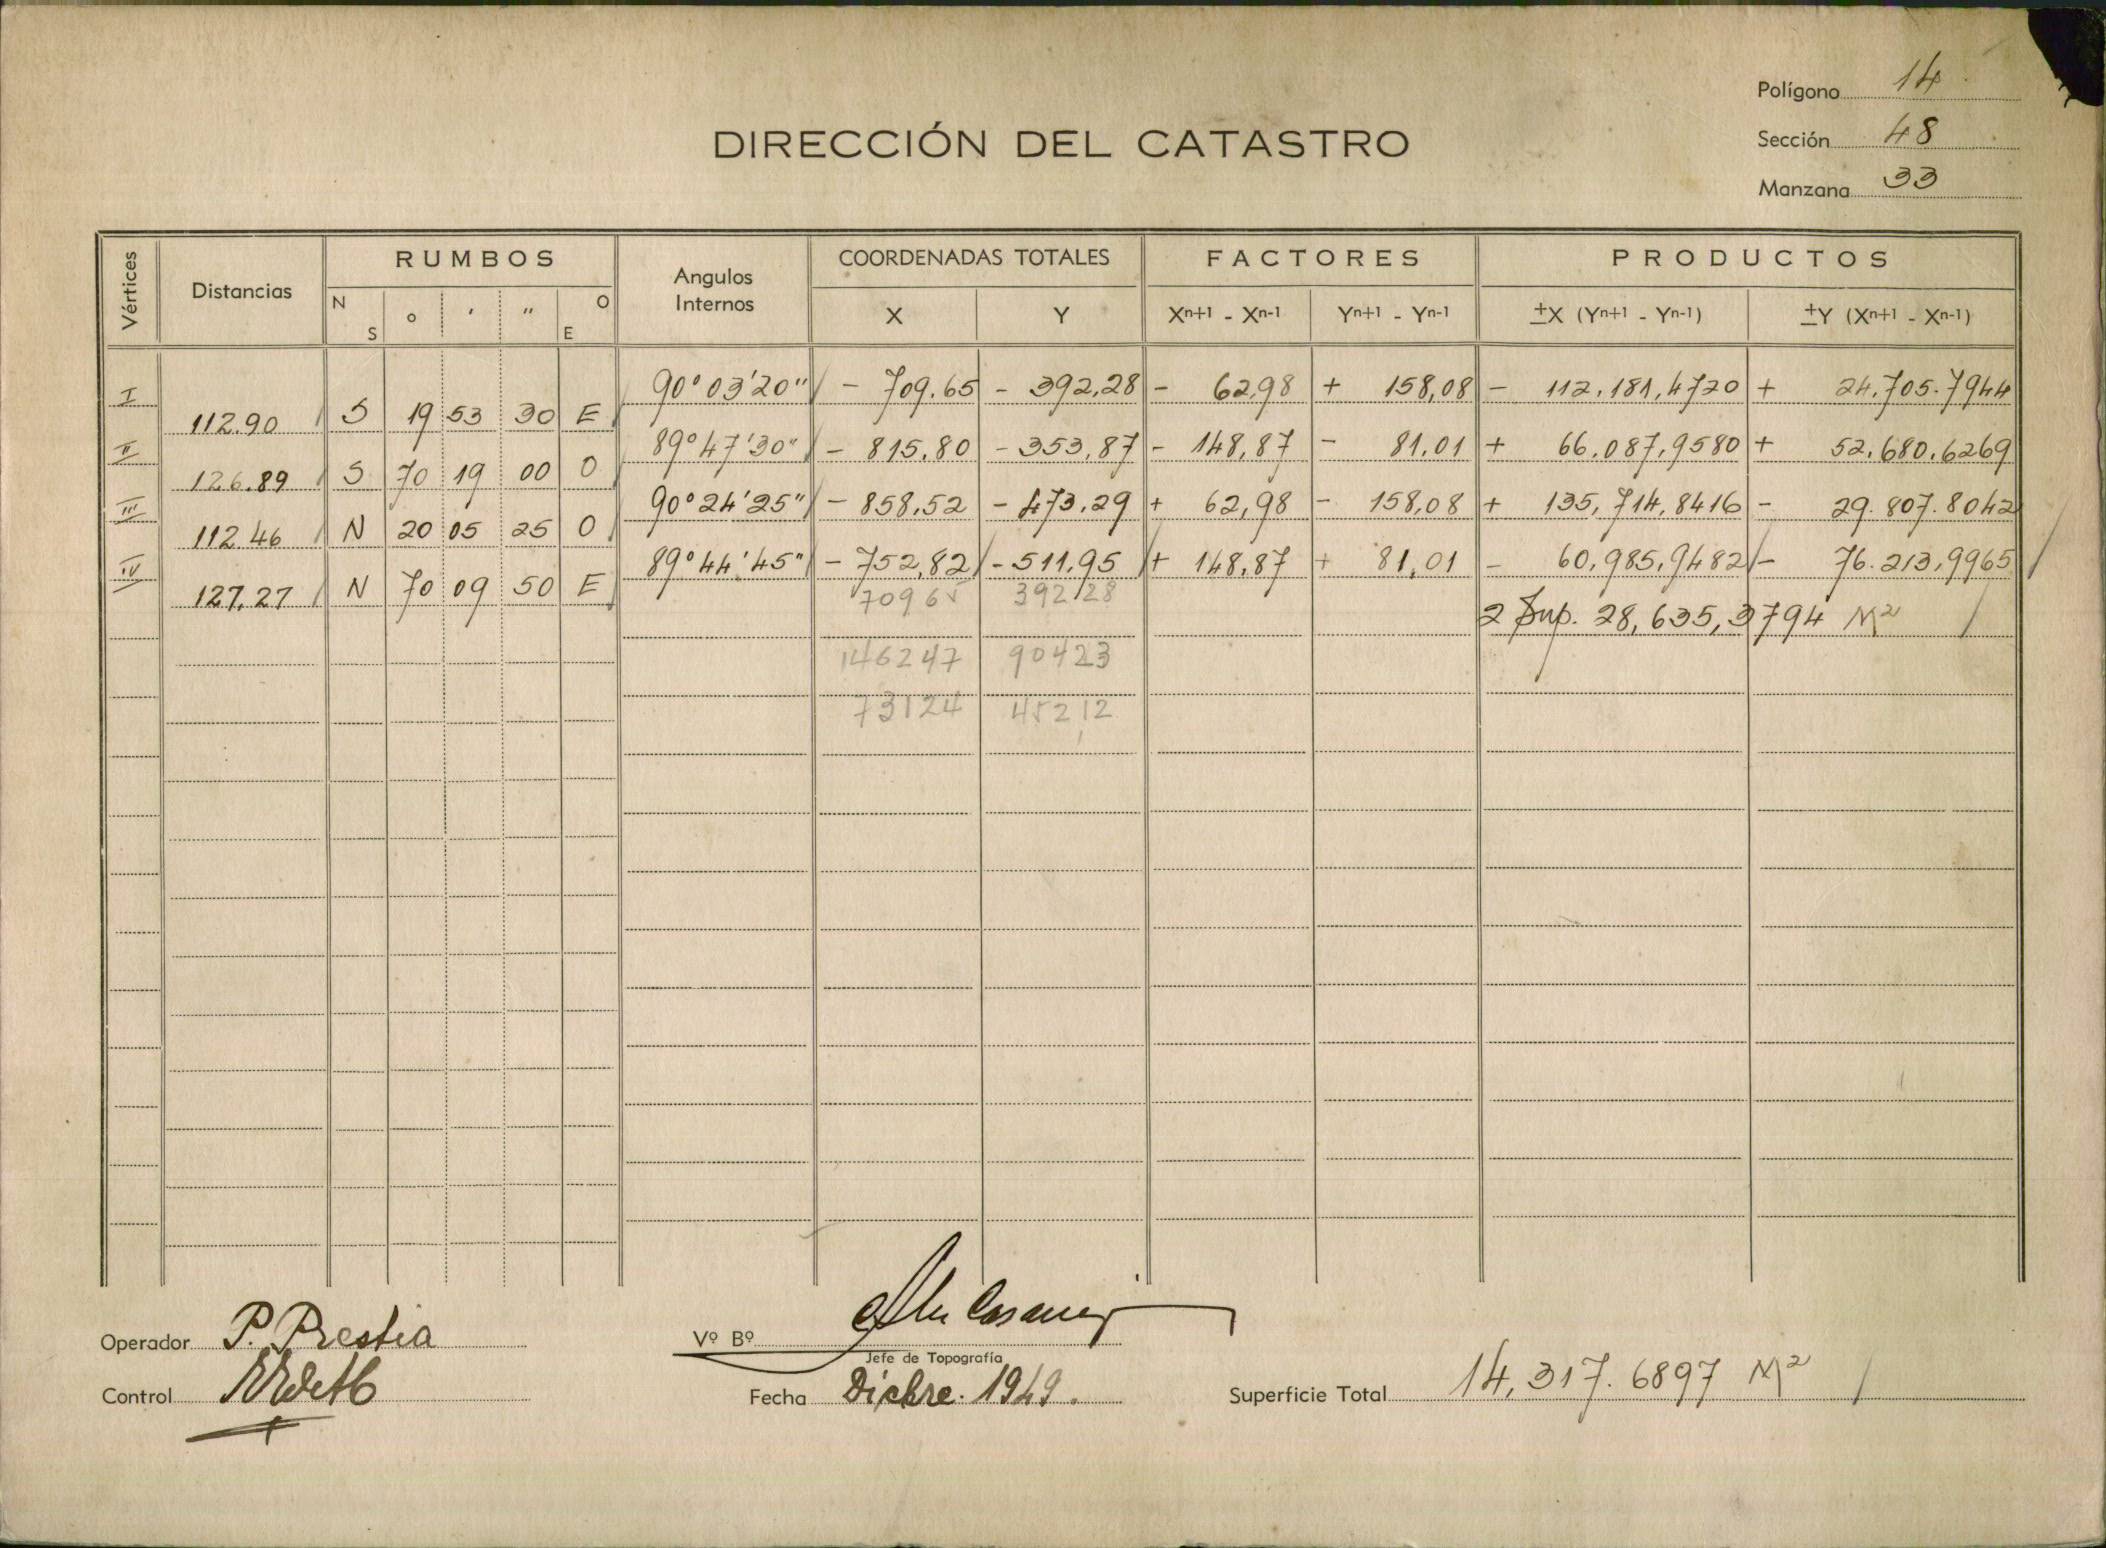 Polígono 14
DIRECCIÓN DEL CATASTRO
Sección 48
Manzana 33
Vértices Distancias RUMBOS Angulos Internos COORDENADAS TOTALES FACTORES PRODUCTOS
N S ° ' " O E X Y Xn+1 - Xn-1 Yn+1 - Yn-1 ±X (Yn+1 - Yn-1) ±Y (Xn+1 - Xn-1)
I 90° 03' 20" - 709.65 - 392,28 - 62,98 + 158,08 - 112.181,4720 + 24.705.7944
112.90 S 19 53 30 E
II 89° 47' 30" - 815,80 - 353,87 - 148,87 - 81.01 + 66.087,9580 + 52.680.6269
126.89 S 70 19 00 O
III 90° 24' 25" - 858,52 - 473,29 + 62,98 - 158,08 + 135,714,8416 - 29.807.8042
112.46 N 20 05 25 O
IV 89° 44' 45" - 752,82 - 511,95 + 148,87 + 81,01 - 60,985,9482 - 76.213,9965
127,27 N 70 09 50 E
70965 39228
2 Sup. 28,635,3794 M²
146247 90423
73124 45212
Operador P. Prestia
Vº Bº
Jefe de Topografía
Control
Fecha Dicbre. 1949.
Superficie Total 14,317.6897 M²